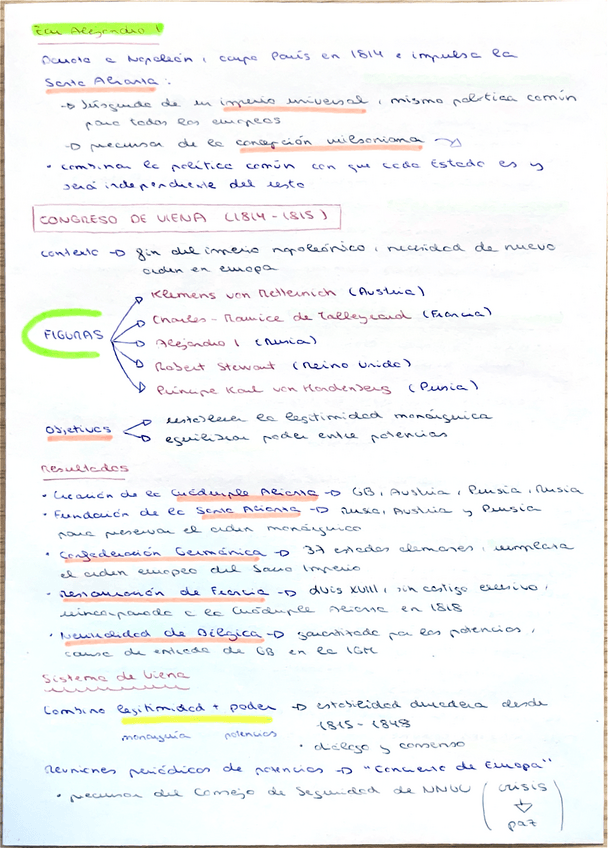 Zar Alejandro I
Derrota a Napoleón, ocupa París en 1814 e impulsa la
Santa Alianza:
→ búsqueda de un imperio universal, misma política común
para todos los europeos
→ precursor de la concepción wilsoniana →
• combinar la política común con que cada Estado es y
será independiente del resto
CONGRESO DE VIENA (1814-1815)
contexto → fin del imperio napoleónico, necesidad de nuevo
orden en europa
FIGURAS
Klemens von Metternich (Austria)
Charles-Maurice de Talleyrand (Francia)
Alejandro I (Rusia)
Robert Stewart (Reino Unido)
Príncipe Karl von Hardenberg (Prusia)
Objetivos
restablecer la legitimidad monárquica
equilibrar poder entre potencias
Resultados
• Creación de la Cuádruple Alianza → GB, Austria, Prusia, Rusia
• Fundación de la Santa Alianza → Rusia, Austria y Prusia
para preservar el orden monárquico
• Confederación Germánica → 37 estados alemanes, remplaza
el orden europeo del Sacro Imperio
• Restauración de Francia → Luis XVIII, sin castigo excesivo,
reincorporada a la Cuádruple Alianza en 1818
• Neutralidad de Bélgica → garantizada por las potencias,
causa de entrada de GB en la IGM
Sistema de Viena
Combina legitimidad + poder → estabilidad duradera desde
monarquía potencias 1815-1848
• diálogo y consenso
Reuniones periódicas de potencias → "Concierto de Europa"
• precursor del Consejo de Seguridad de NNUU (crisis
↓
paz)